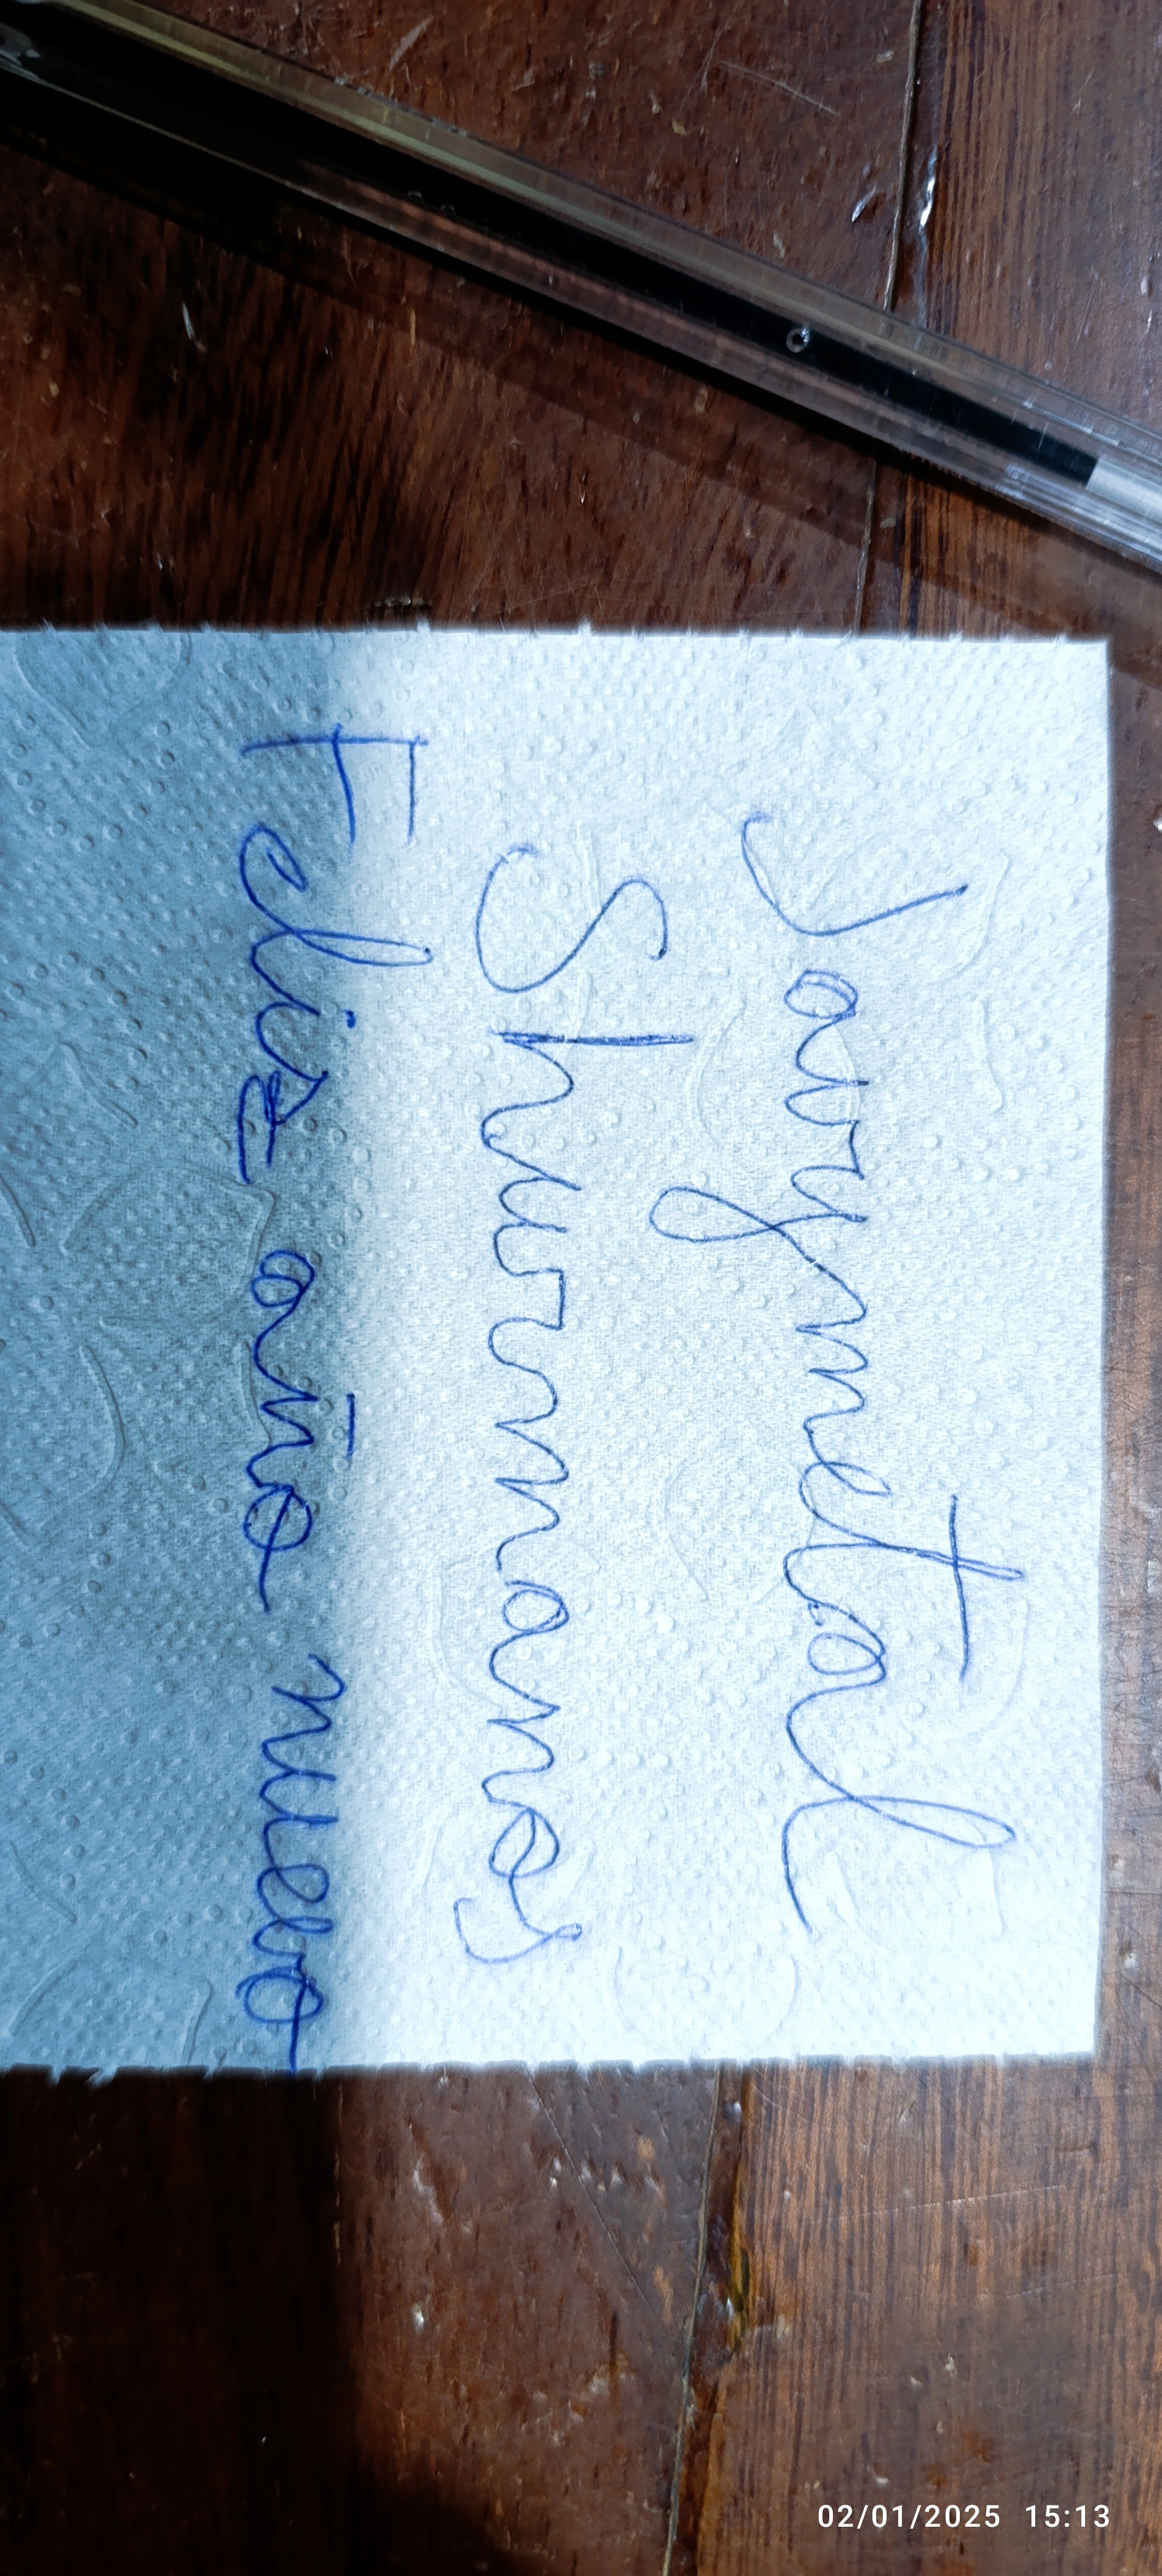 Javymetal
Shurmanos
Feliz año nuevo
02/01/2025 15:13